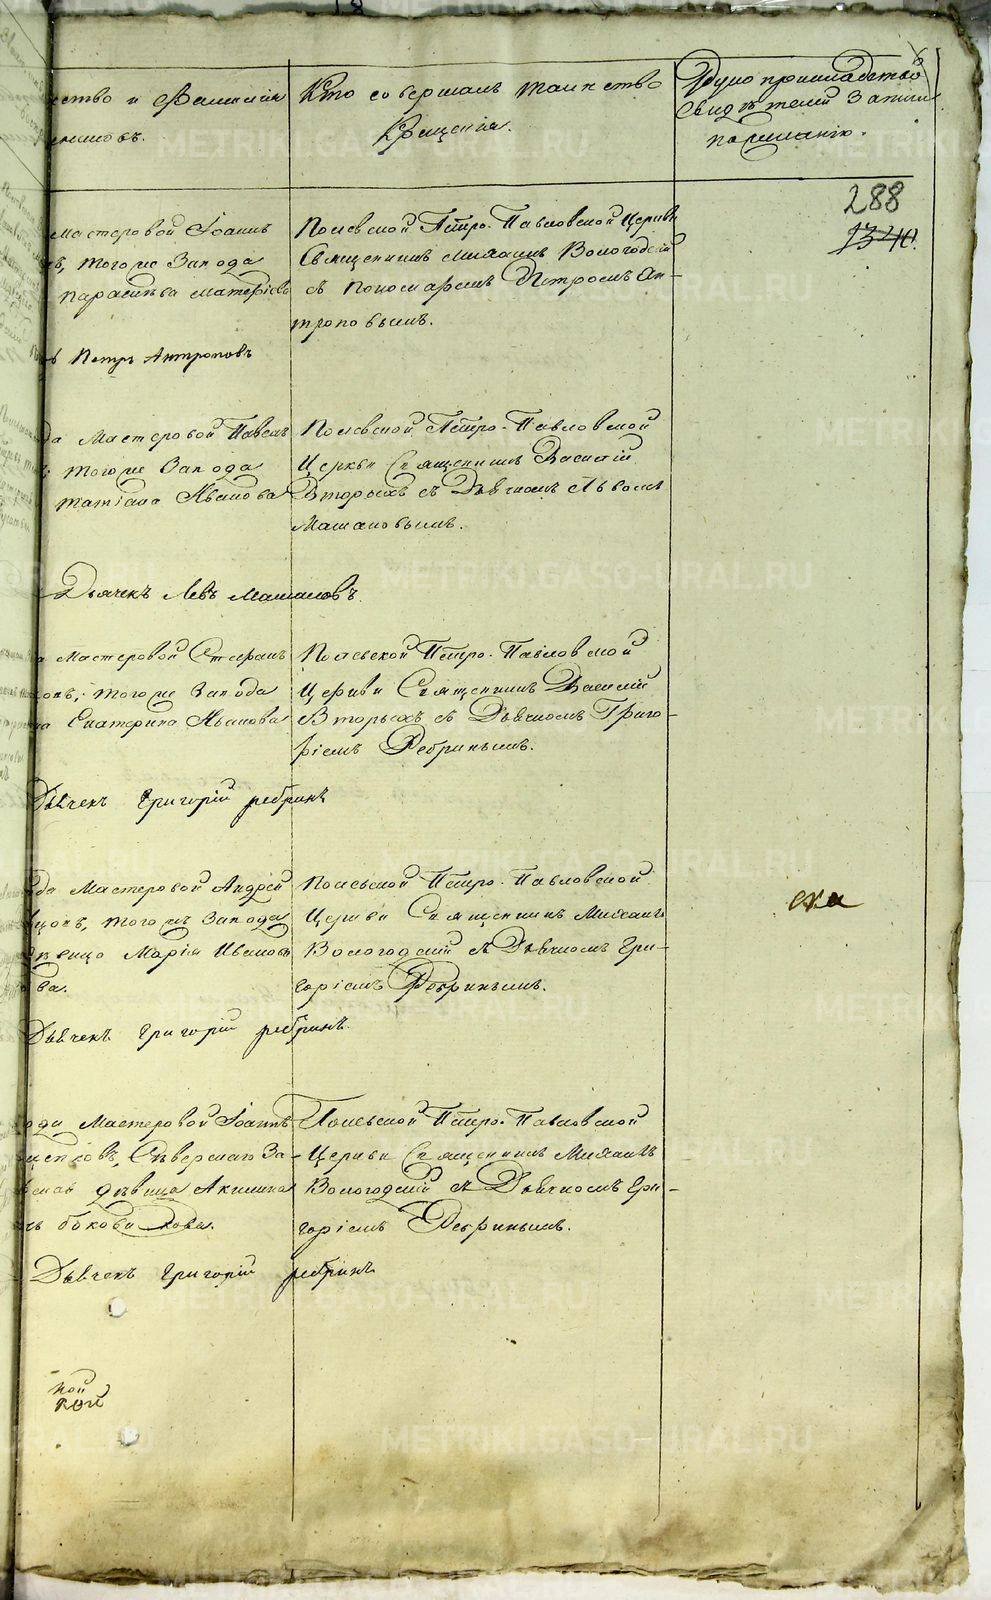 18
ество и Фамилія
емниковъ.
Кто совершалъ таинство
Крещенія.
Рукоприкладство
Свидѣтелей записи
по желанію.
288
1340.
мастеровой Іоаннъ
того же Завода
Параскева Матвѣева
Полевской Петро-Павловской Церкви
Священникъ Михаилъ Вологодскій
съ Пономаремъ Петромъ Ан-
троповымъ.
Петръ Антроповъ
да Мастеровой Павелъ
того же Завода
Татіана Иванова
Полевской Петро-Павловской
Церкви Священникъ Василій
Вторыхъ съ Дьячкомъ Львомъ
Машановымъ.
Дьячекъ Левъ Машановъ.
а Мастеровой Стефанъ
того же Завода
на Екатерина Иванова
Полевской Петро-Павловской
Церкви Священникъ Василій
Вторыхъ съ Дьячкомъ Григо-
ріемъ Ребринымъ.
Дьячекъ Григорій Ребринъ
да Мастеровой Андрей
того жъ Завода
дѣвица Марія Иванова
ва.
Полевской Петро-Павловской
Церкви Священникъ Михаилъ
Вологодскій съ Дьячкомъ Гри-
горіемъ Ребринымъ.
ека
Дьячекъ Григорій Ребринъ.
ода Мастеровой Іоаннъ
Сѣверскаго За-
дѣвица Акилина
Полевской Петро-Павловской
Церкви Священникъ Михаилъ
Вологодскій съ Дьячкомъ Гри-
горіемъ Ребринымъ.
Дьячекъ Григорій Ребринъ
ной
кой
METRIKI.GASO-URAL.RU